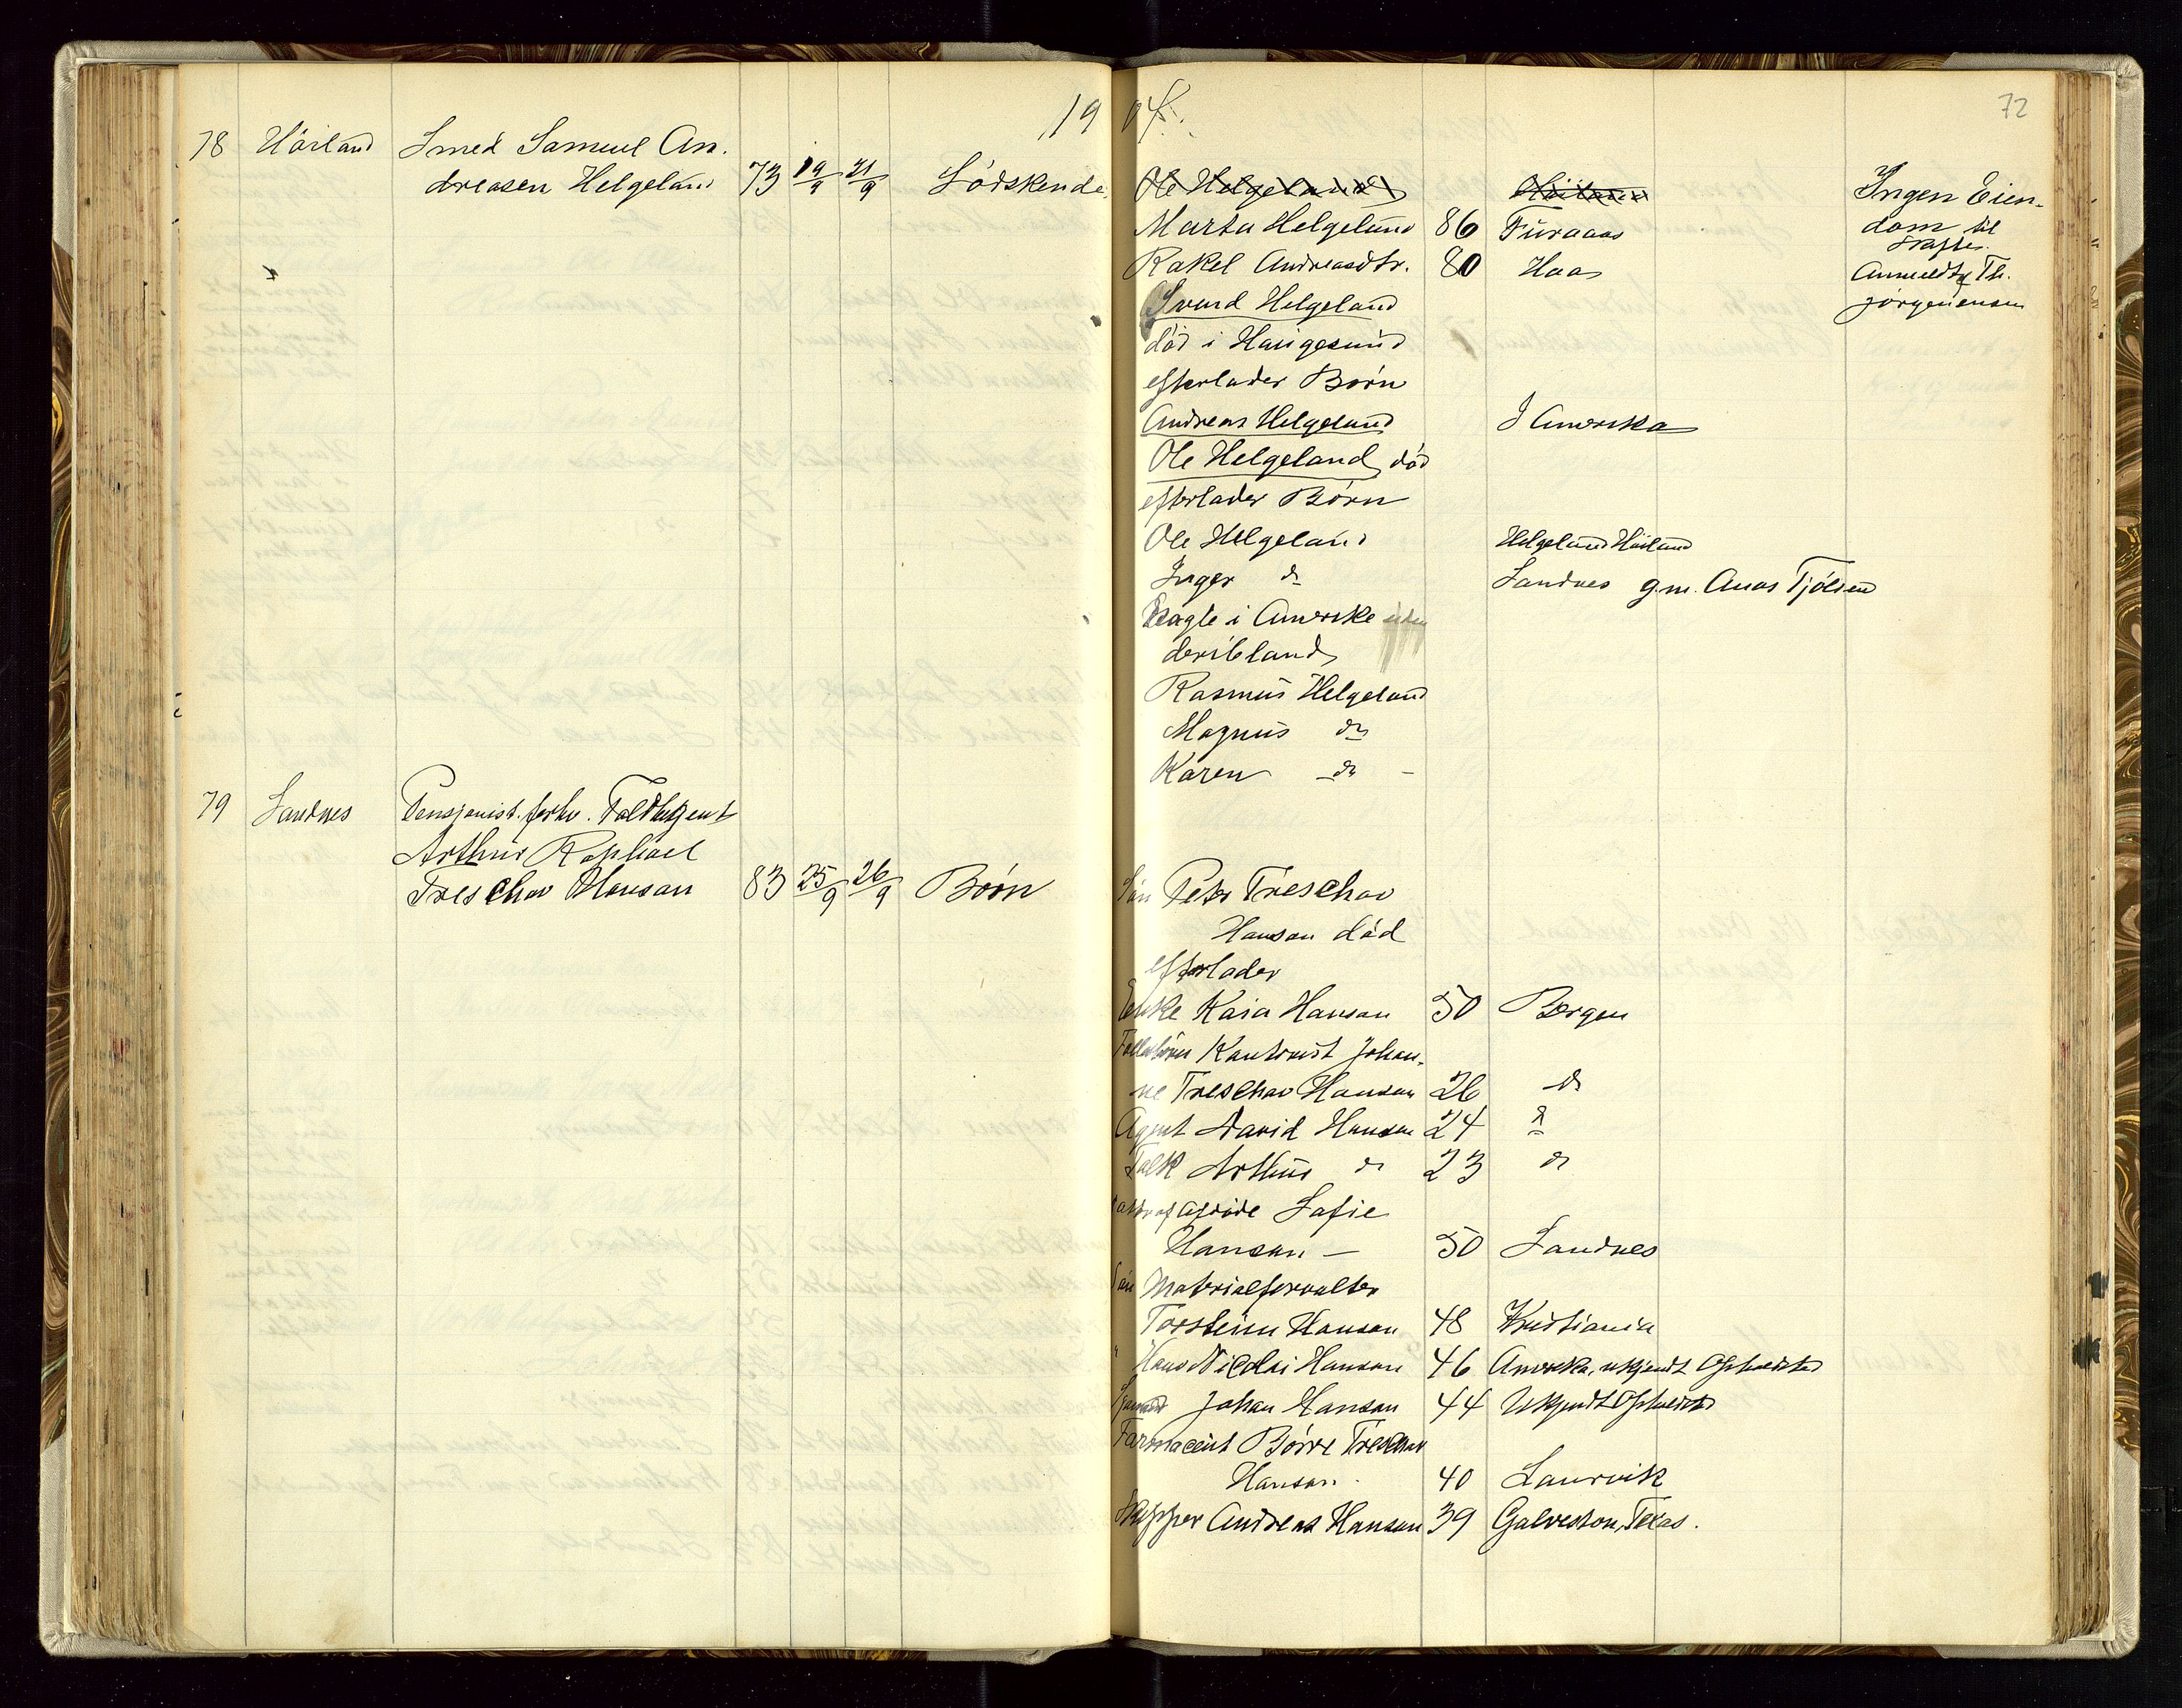 1904.
72
78 Höiland Smed Samuel An-
dreasen Helgeland 73 19/9 21/9 Sødskende
Ole Helgeland Höiland Ingen Eien-
Marta Helgeland 86 dom til
Skifte.
Rakel Andreasdtr. 80 Haa Anmeldt Th.
Svend Helgeland
död i Haugesund
efterlader Børn
Andreas Helgeland I Amerika
Ole Helgeland död
efterlader Börn
Ole Helgeland Helgeland Höiland
Inger do Sandnes g.m. Tjölsen
i Amerika
deriblandt
Rasmus Helgeland
Magnus do
Karen do -
79 Sandnes Pensjonist. forhv. Toldbetjent
Arthur Raphael
Treschow Hanson 83 25/9 26/9 Børn
Sön Peter Treschow
Hanson död
efterlader
Enke Kaia Hanson 50 Bergen
Kontorist Johan-
ne Treschow Hanson 26 do
Agent David Hanson 24 do
Falk Arthur do 23 do
Datter af afdöde Sofie
Hanson — 50 Sandnes
Sön Materialforvalter
Torstein Hanson 48 Kristiania
" Hans Nicolai Hanson 46 Amerika, ukjendt Opholdsted
Sjømand Johan Hanson 44 Ukjendt Opholdsted
Farmaceut Börre Treschow
Hanson. 40 Laurvik
Skipper Andreas Hanson 39 Galveston, Texas.